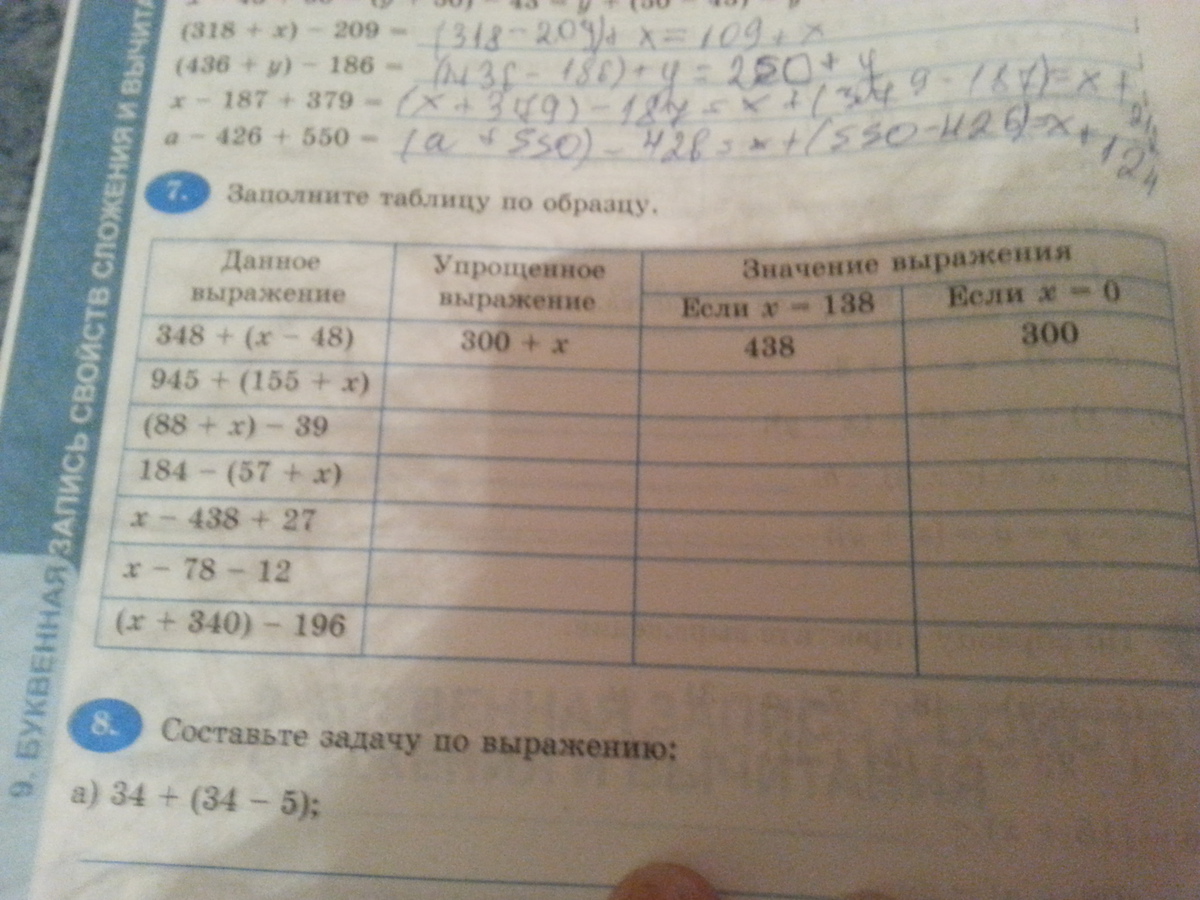 (318 + x) − 209 = (318 − 209) + x = 109 + x
(436 + y) − 186 = (436 − 186) + y = 250 + y
x − 187 + 379 = (x + 379) − 187 = x + (379 − 187) = x +
a − 426 + 550 = (a + 550) − 426 = x + (550 − 426) = x + 124
7. Заполните таблицу по образцу.
Данное выражение
Упрощенное выражение
Значение выражения
Если x = 138
Если x = 0
348 + (x − 48) 300 + x 438 300
945 + (155 + x)
(88 + x) − 39
184 − (57 + x)
x − 438 + 27
x − 78 − 12
(x + 340) − 196
8. Составьте задачу по выражению:
а) 34 + (34 − 5);
9. БУКВЕННАЯ ЗАПИСЬ СВОЙСТВ СЛОЖЕНИЯ И ВЫЧИТА